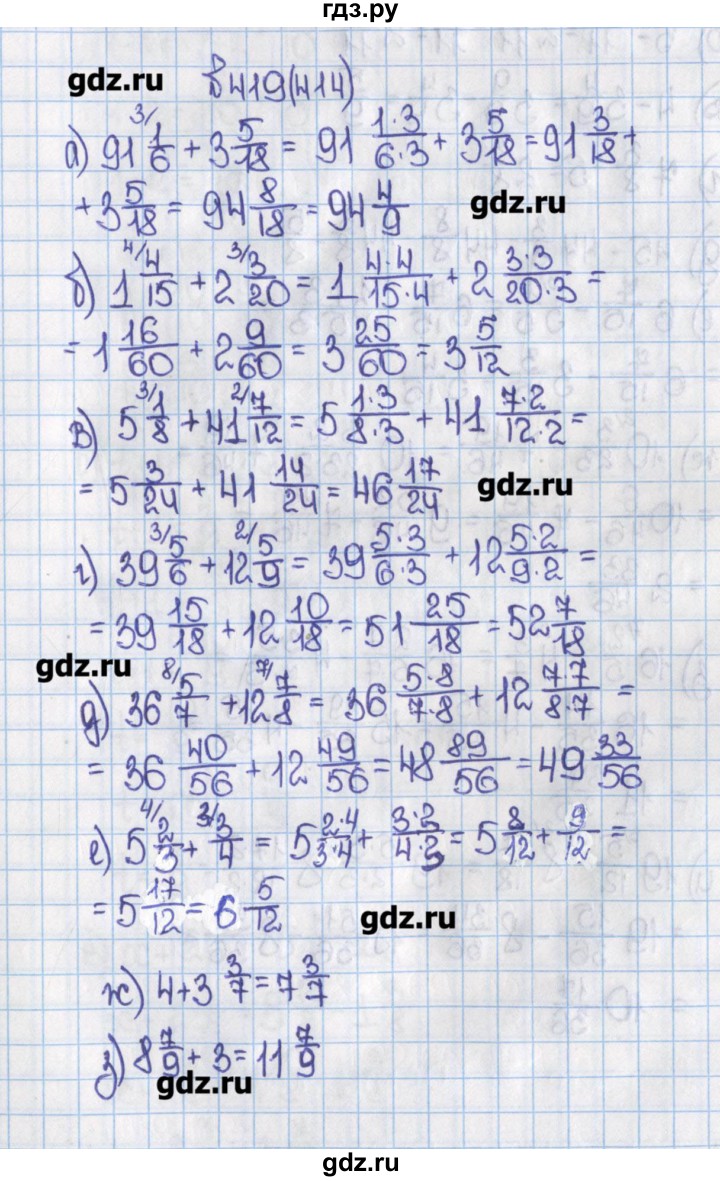 гдз.ру
gdz.ru
№419(414)
а) 91 3/ 1/6 + 3 5/18 = 91 1·3/6·3 + 3 5/18 = 91 3/18 +
+ 3 5/18 = 94 8/18 = 94 4/9
gdz.ru
б) 1 4/ 4/15 + 2 3/ 3/20 = 1 4·4/15·4 + 2 3·3/20·3 =
= 1 16/60 + 2 9/60 = 3 25/60 = 3 5/12
в) 5 3/ 1/8 + 41 2/ 7/12 = 5 1·3/8·3 + 41 7·2/12·2 =
= 5 3/24 + 41 14/24 = 46 17/24
gdz.ru
г) 39 3/ 5/6 + 12 2/ 5/9 = 39 5·3/6·3 + 12 5·2/9·2 =
= 39 15/18 + 12 10/18 = 51 25/18 = 52 7/18
gdz.ru
д) 36 8/ 5/7 + 12 7/ 7/8 = 36 5·8/7·8 + 12 7·7/8·7 =
= 36 40/56 + 12 49/56 = 48 89/56 = 49 33/56
е) 5 4/ 2/3 + 3/ 3/4 = 5 2·4/3·4 + 3·3/4·3 = 5 8/12 + 9/12 =
= 5 17/12 = 6 5/12
gdz.ru
ж) 4 + 3 3/7 = 7 3/7
з) 8 7/9 + 3 = 11 7/9
gdz.ru
gdz.ru